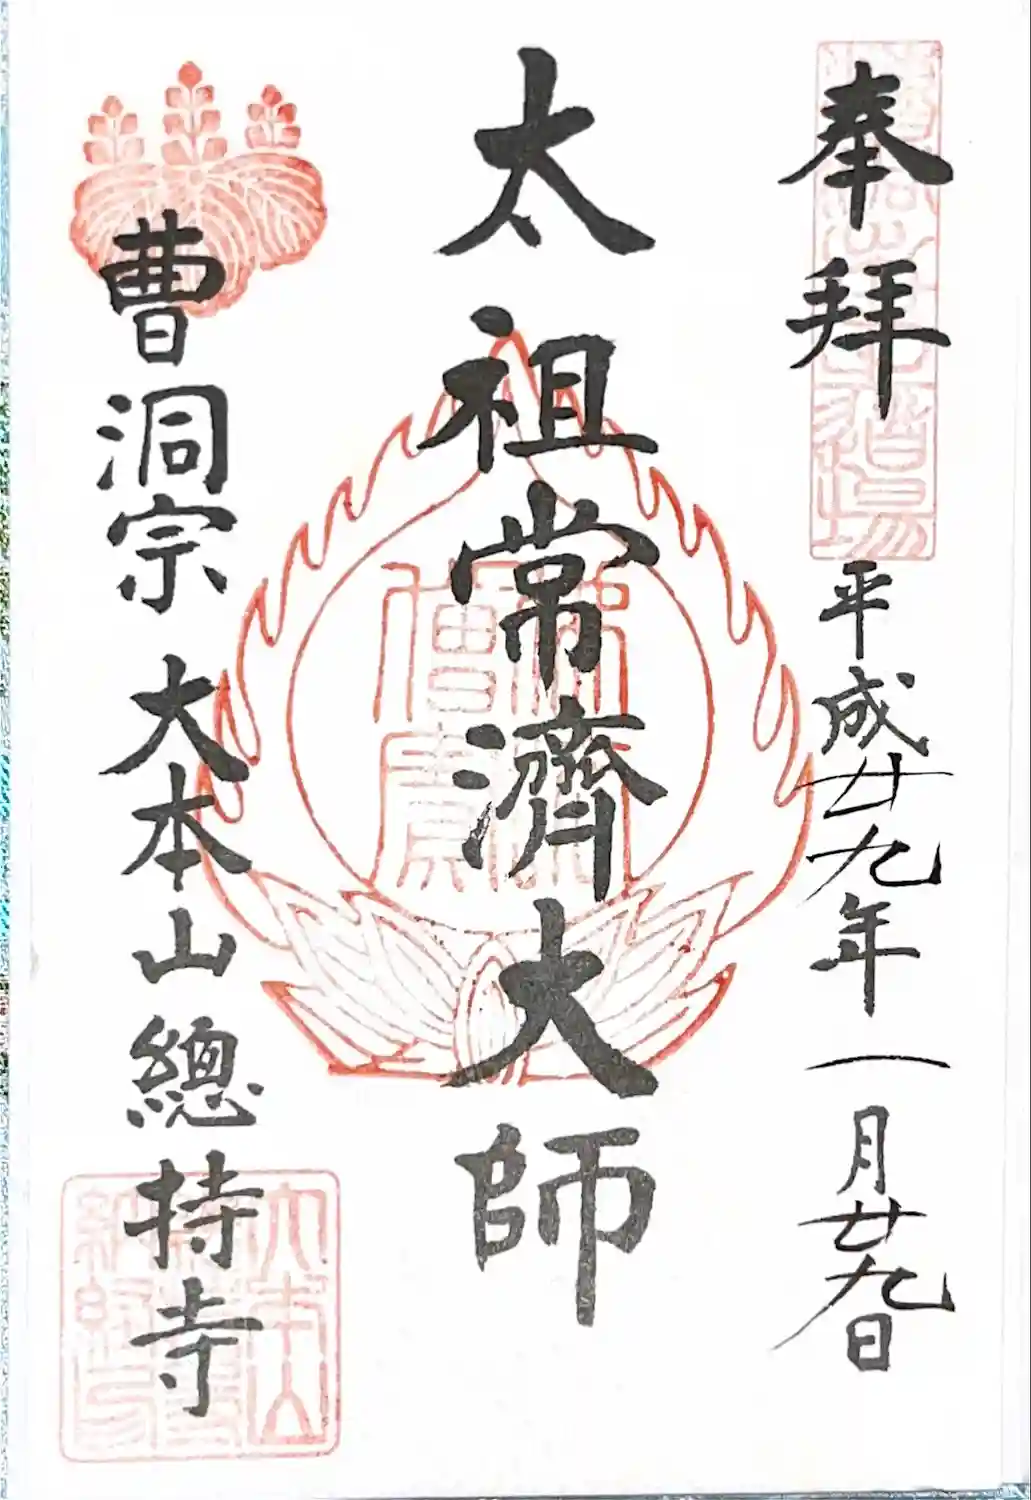 奉拝
平成廿九年一月廿九日
太祖常濟大師
曹洞宗 大本山 總持寺